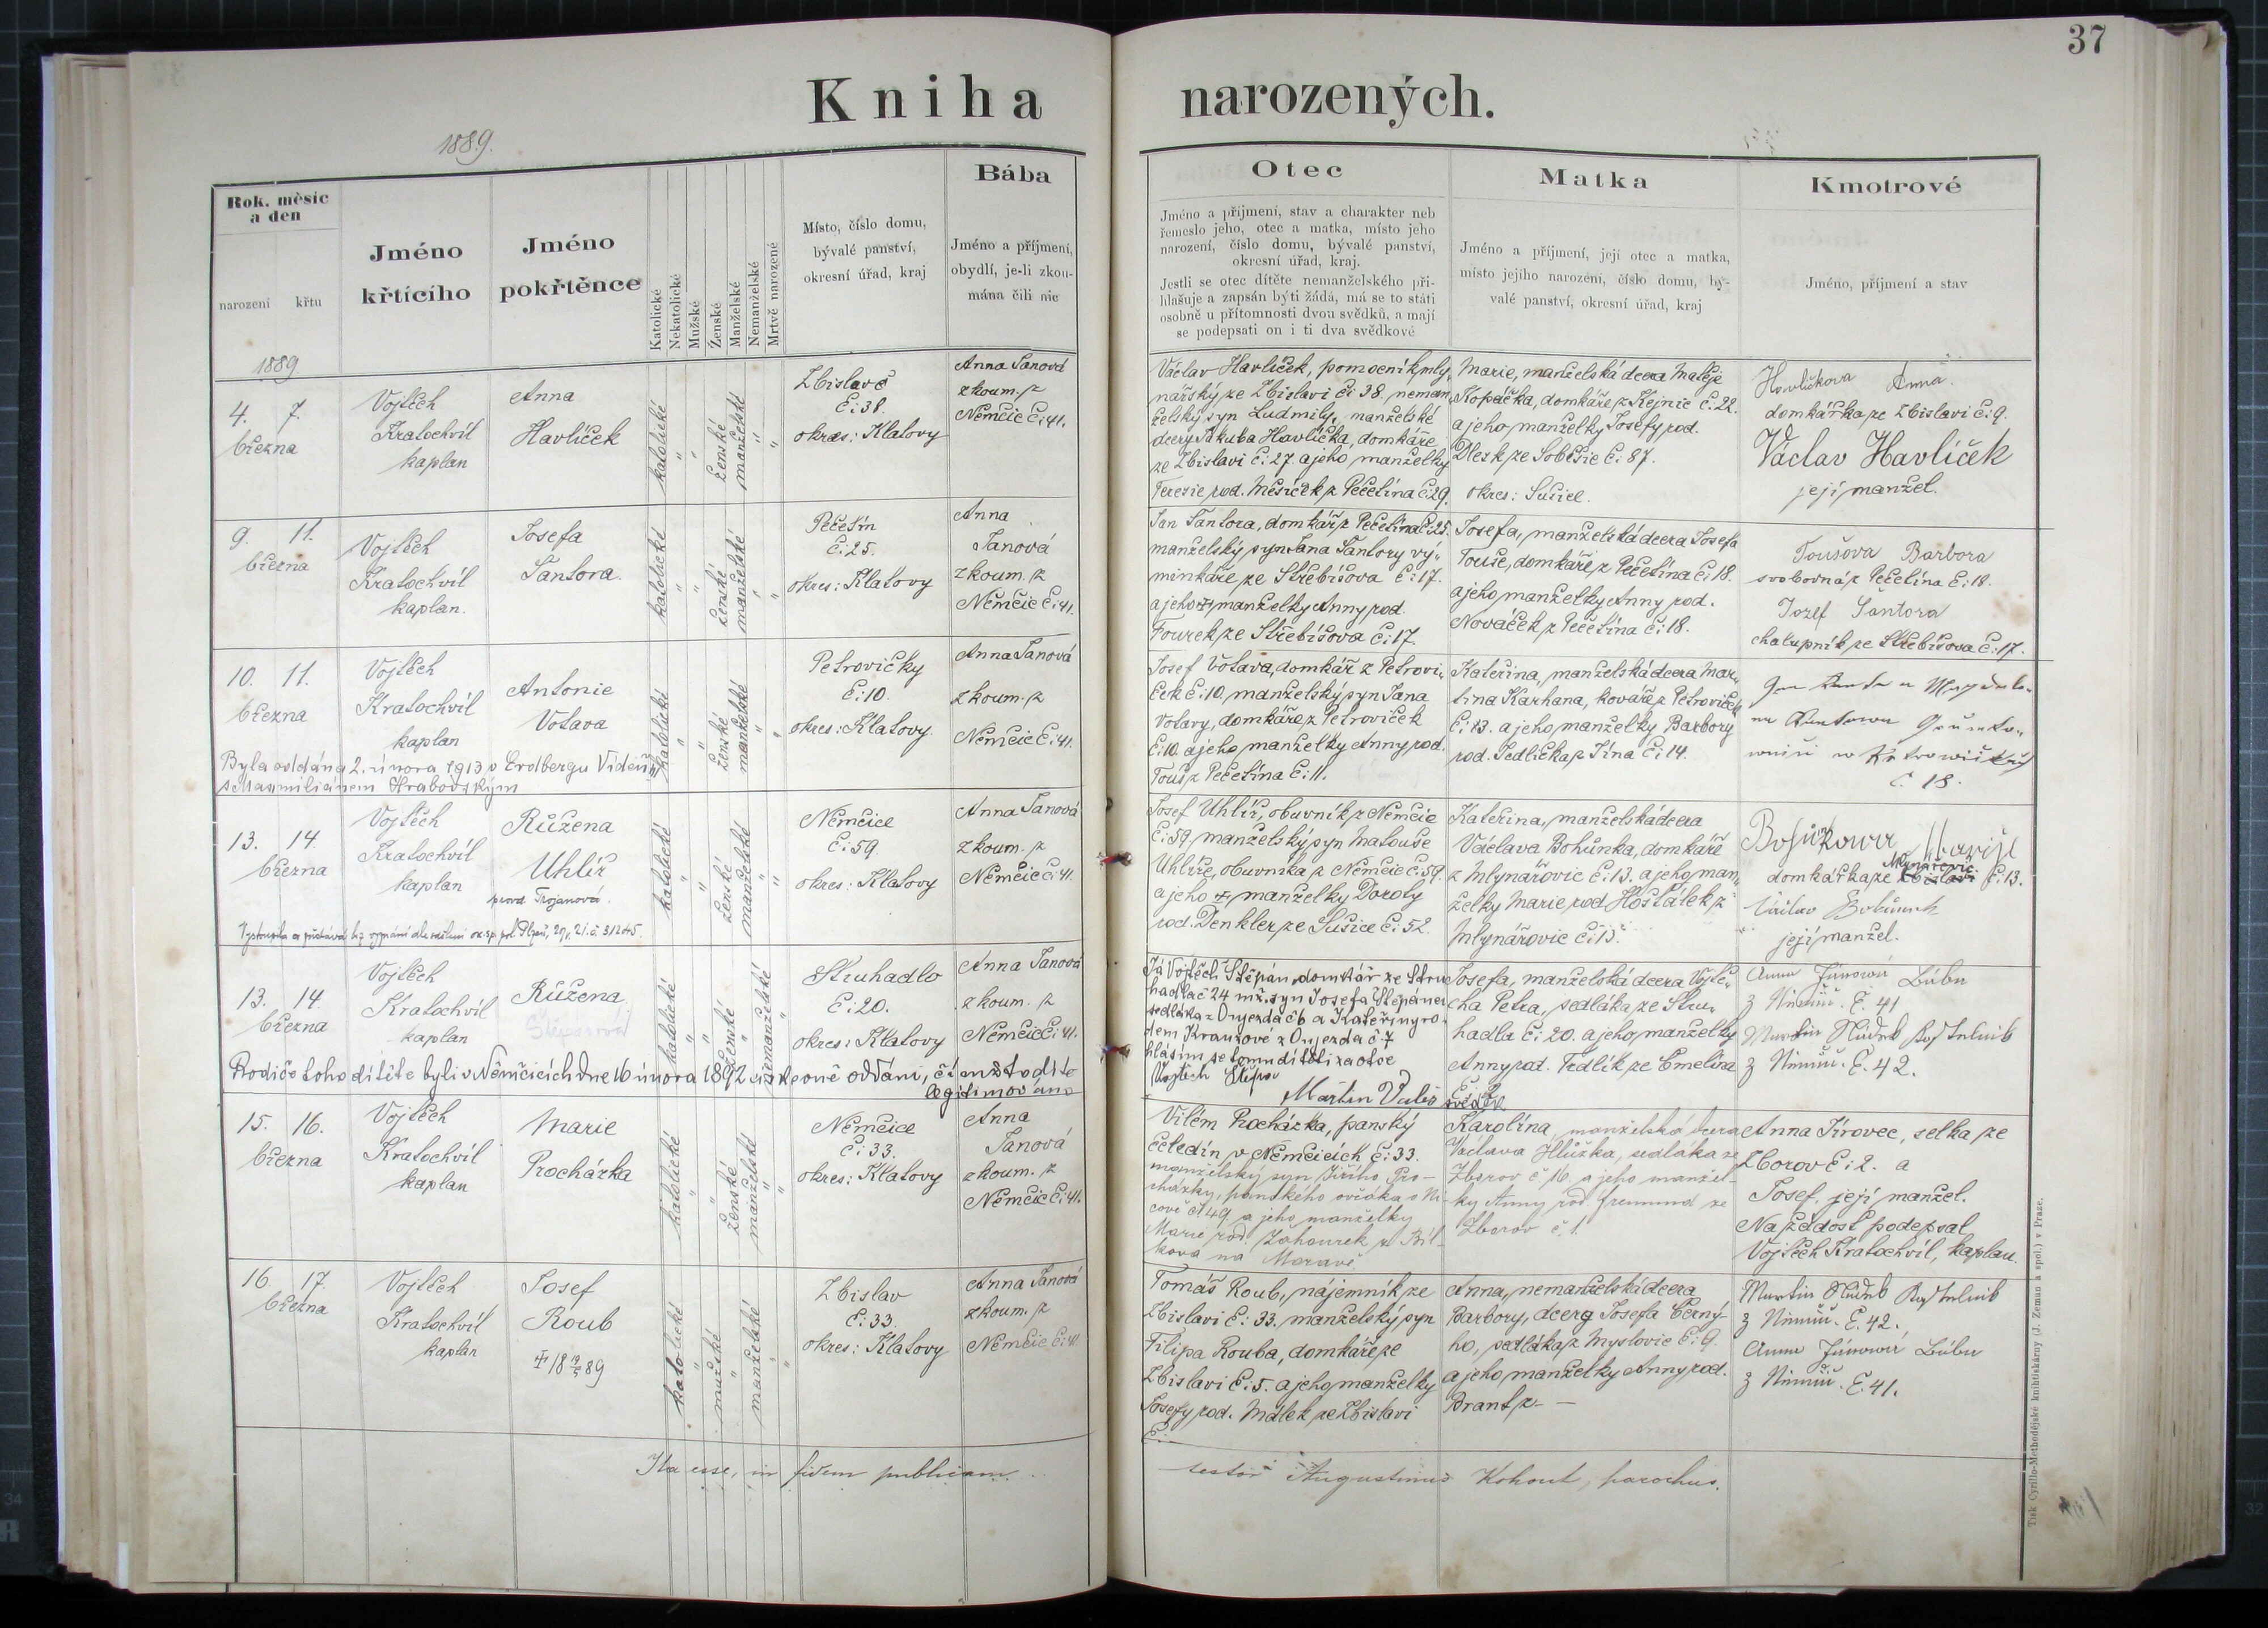 37
Kniha narozených.
1889.
Rok, měsíc a den
narození křtu
Jméno křtícího
Jméno pokřtěnce
Katolické
Nekatolické
Mužské
Ženské
Manželské
Nemanželské
Mrtvě narozené
Místo, číslo domu,
bývalé panství,
okresní úřad, kraj
Bába
Jméno a příjmení,
obydlí, je-li zkou-
mána čili nic
Otec
Jméno a přijmení, stav a charakter neb
řemeslo jeho, otec a matka, místo jeho
narození, číslo domu, bývalé panství,
okresní úřad, kraj.
Jestli se otec dítěte nemanželského při-
hlašuje a zapsán býti žádá, má se to státi
osobně u přítomnosti dvou svědků, a mají
se podepsati on i ti dva svědkové
Matka
Jméno a příjmení, její otec a matka,
místo jejího narození, číslo domu, bý-
valé panství, okresní úřad, kraj
Kmotrové
Jméno, příjmení a stav
1889
4. 7.
března
Vojtěch
Kratochvíl
kaplan
Anna
Havlíček
katolické
ženské
manželské
Zbislav č
č: 38.
okres: Klatovy
Anna Janová
zkoum. z
Němčic č: 41.
Václav Havlíček, pomocník mly-
nářský ze Zbislavi č: 38. neman-
želský syn Ludmily, manželské
dcery Jakuba Havlíčka, domkáře
ze Zbislavi č: 27. a jeho manželky
Teresie rod. Měsíček z Pečetína č: 29.
Marie, manželská dcera Matěje
Kopáčka, domkáře z Kejnic č: 22.
a jeho manželky Josefy rod.
Dlesk ze Soběšic č: 87.
okres: Sušice.
Havlíčkova Anna.
domkářka ze Zbislavi č: 9.
Václav Havlíček
její manžel.
9. 11.
března
Vojtěch
Kratochvíl
kaplan.
Josefa
Santora.
katolické
ženské
manželské
Pečetín
č: 25.
okres: Klatovy
Anna
Janová
zkoum. z
Němčic č: 41.
Jan Santora, domkář z Pečetína č: 25.
manželský syn Jana Santory vý-
minkáře ze Střebíšova č: 17.
a jeho manželky Anny rod.
Fourek ze Střebíšova č: 17.
Josefa, manželská dcera Josefa
Touše, domkáře z Pečetína č: 18.
a jeho manželky Anny rod.
Nováček z Pečetína č: 18.
Toušova Barbora
svobodná z Pečetína č: 18.
Jozef Šantora
chalupník ze Střebíšova č: 17.
10. 11.
března
Vojtěch
Kratochvíl
kaplan
Antonie
Votava
katolické
ženské
manželské
Petrovičky
č: 10.
okres: Klatovy.
Anna Janová
zkoum. z
Němčic č: 41.
Byla oddána 2. února 1913 v Erdbergu Vídeň
s Maxmiliánem Hrabovským
Josef Votava, domkář z Petrovi-
ček č: 10, manželský syn Jana
Votavy, domkáře z Petroviček
č: 10. a jeho manželky Anny rod.
Touš z Pečetína č: 11.
Kateřina, manželská dcera Mar-
tina Karhana, kováře z Petroviček
č: 13. a jeho manželky Barbory
rod. Sedlička z Jína č: 14.
č. 18.
13. 14.
března
Vojtěch
Kratochvíl
kaplan
Růžena
Uhlíř
provd. Trojanová.
katolické
ženské
manželské
Němčice
č: 59.
okres: Klatovy
Anna Janová
zkoum. z
Němčic č: 41.
Josef Uhlíř, obuvník z Němčic
č: 59, manželský syn Matouše
Uhlíře, obuvníka z Němčic č: 59.
a jeho manželky Doroty
rod. Denkler ze Sušice č: 52.
Kateřina, manželská dcera
Václava Bohůnka, domkáře
z Mlynářovic č: 13. a jeho man-
želky Marie rod. Hošťálek z
Mlynářovic č: 13.
Mlynářovic
domkářka ze č: 13.
Václav Bohunek
její manžel.
13. 14.
března
Vojtěch
Kratochvíl
kaplan
Růžena
katolické
ženské
nemanželské
Struhadlo
č: 20.
okres: Klatovy
Anna Janová
zkoum. z
Němčic č: 41.
Rodiče toho dítěte byli v Němčicích dne 16 února 1892 církevně oddáni, čímž toto dítě
legitimováno
Já Vojtěch Štěpán domkář ze Stru
hadla č 24 mž. syn Josefa Štěpána
sedláka z Oujezda č 6 a Kateřiny ro-
dem Krausové z Oujezda č. 7
hlásím se tomu dítěti za otce
Vojtěch Štěpán
Martin Vališ svědek
Josefa, manželská dcera Vojtě-
cha Petra, sedláka ze Stru-
hadla č: 20. a jeho manželky
Anny rod. Tedlík ze Cmelína
Anna Janowá Bába
z Němčic. č. 41
z Němčic. č. 42.
15. 16.
března
Vojtěch
Kratochvíl
kaplan
Marie
Procházka
katolické
ženské
manželské
Němčice
č: 33.
okres: Klatovy
Anna
Janová
zkoum. z
Němčic č: 41.
Vilém Procházka, panský
čeledín v Němčicích č: 33.
manželský syn Jiřího Pro-
cházky, panského ovčáka
a jeho manželky
Marie rod. Zahourek
na Moravě
Karolína, manželská dcera
Václava Hlůška, sedláka ze
Zborov č 16. a jeho manžel-
ky Anny rod. ze
Zborov č. 1.
Anna Jírovec, selka ze
Zborov č: 2. a
Josef, její manžel.
Na žádost podepsal
Vojtěch Kratochvíl, kaplan.
16. 17.
března
Vojtěch
Kratochvíl
kaplan
Josef
Roub
katolické
mužské
manželské
Zbislav
č: 33.
okres: Klatovy
Anna Janová
zkoum. z
Němčic č: 41.
Tomáš Roub, nájemník ze
Zbislavi č: 33. manželský syn
Filipa Rouba, domkáře ze
Zbislavi č: 5. a jeho manželky
Josefy rod. Málek ze Zbislavi
č:
Anna, nemanželská dcera
Barbory, dcery Josefa Černý-
ho, sedláka z Myslovic č: 9.
a jeho manželky Anny rod.
Brant z —
z Němčic. č. 42.
Anna Janowá Bába
z Němčic. č. 41.
Ita esse, in fidem publicam
testor Augustinus Kohout, parochus.
Tisk Cyrillo-Methodějské knihtiskárny (J. Zeman a spol.) v Praze.